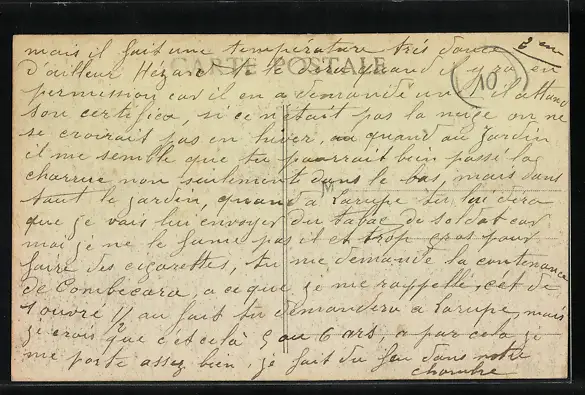 2 em
mais il fait une température très douce
CARTE POSTALE
d'ailleur Hézard te le dira quand il y ra en
10
permission car il en a demandé un il attend
son certifica, si ce n'était pas la nuge on ne
se croirait pas en hiver, quand au jardin
il me semble que tu pourrait bien passé la
charrue non seulement dans le bas, mais dans
tout le jardin, quand à Larupe tu lui dira
que je vais lui envoyer du tabac de soldat car
moi je ne le fume pas il et trop gros pour
faire des cigarettes, tu me demande la contenance
de Combecara, a ce que je me rappelle, c'ét de
1 ouvré 1/2 au fait tu demandera a Larupe, mais
je crois que c'et celà 5 ou 6 ars, a par cela je
me porte assez bien, je fait du feu dans notre
chambre